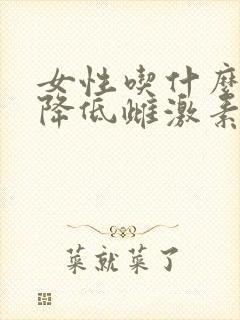 女性喫什麼
降低雌激素
菜就菜了